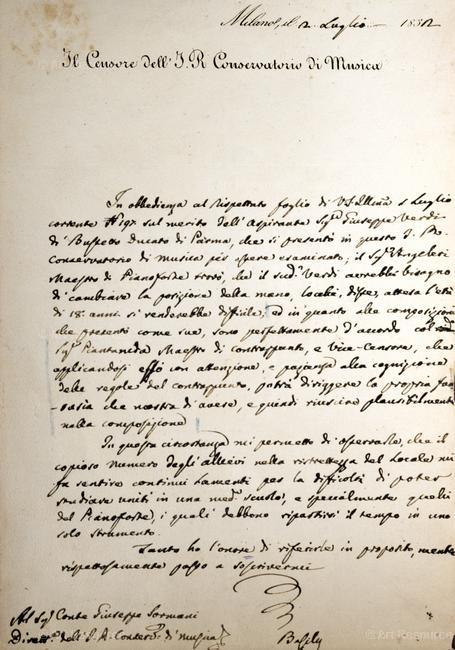 Milano, il 2 Luglio 1832
Il Censore dell' I. R. Conservatorio di Musica
In obbedienza al rispettato foglio di V. S. Illma 1 Luglio
corrente N 197 sul merito dell' Aspirante Sigr Giuseppe Verdi
di Busseto Ducato di Parma, che si presentò in questo I. R.
Conservatorio di musica per essere esaminato; il Sigr Angeleri
Maestro di Pianoforte trovò, che il sudo Verdi avrebbe bisogno
di cambiare la posizione della mano, locchè, disse, attesa l'età
di 18 anni si renderebbe difficile; ed in quanto alle composizioni
che presentò come sue, sono perfettamente d'accordo col
Sigr Piantanida Maestro di contrappunto, e Vice-Censore, che
applicandosi esso con attenzione, e pazienza alla cognizione
delle regole del contrappunto, potrà diriggere la propria fan-
tasia che mostra di avere, e quindi riuscire plausibilmente
nella composizione
In questa circostanza mi permetto di osservarle, che il
copioso numero degli allievi nella ristrettezza del Locale mi
fa sentire continui lamenti per la difficoltà di poter
studiare uniti in una meda scuola, e specialmente quelli
del Pianoforte, i quali debbono ripartirsi il tempo in uno
solo strumento.
Tanto ho l'onore di riferirle in proposito, mentre
rispettosamente passo a soscrivermi
Al Sigr Conte Giuseppe Sormani
Dirette dell' I. R. Conservo di musica
Basily
© Art Resource